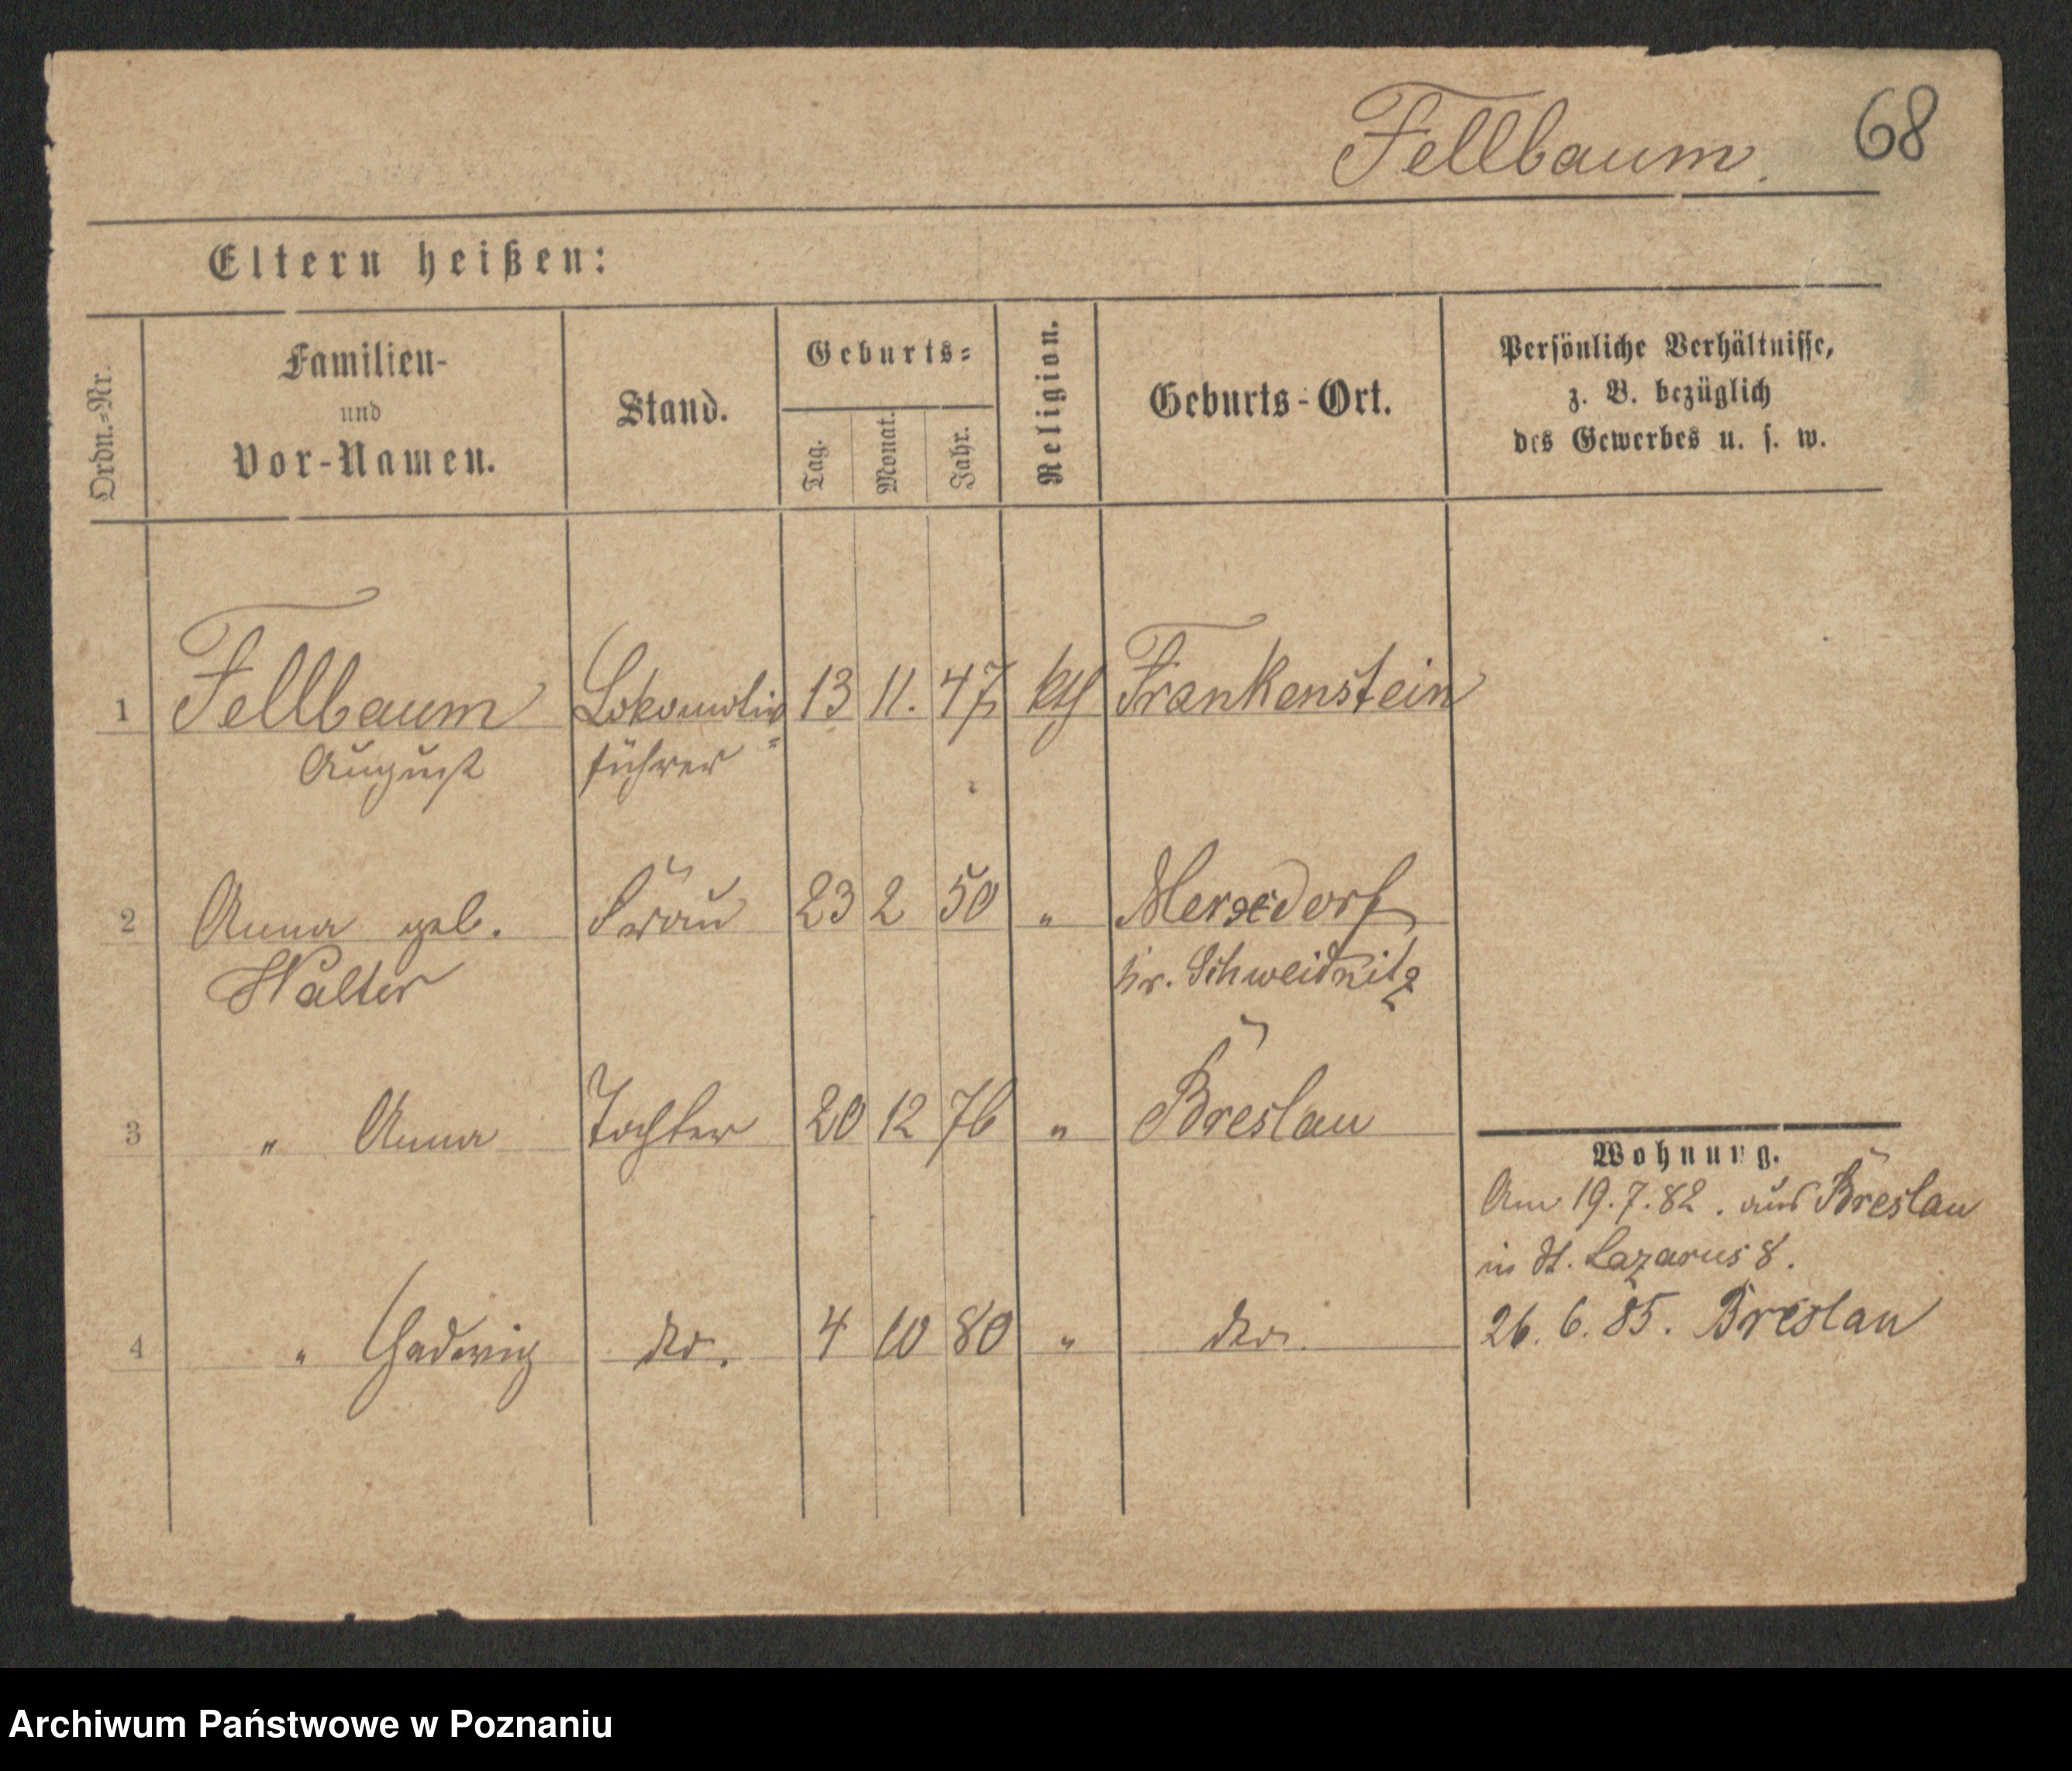 Fellbaum. 68
Eltern heißen:
Ordn.-Nr.
Familien-
und
Vor-Namen.
Stand.
Geburts-
Tag.
Monat.
Jahr.
Religion.
Geburts-Ort.
Persönliche Verhältnisse,
z. B. bezüglich
des Gewerbes u. s. w.
1 Fellbaum Lokomotiv 13 11. 47 kth Frankenstein
August führer
2 Anna geb. Frau 23 2 50 "
Walter Kr. Schweidnitz
3 " Anna Tochter 20 12 76 " Breslau
Wohnung.
Am 19.7.82. aus Breslau
in St. Lazarus 8.
4 " Hedwig do. 4 10 80 " do. 26. 6. 85. Breslau
Archiwum Państwowe w Poznaniu